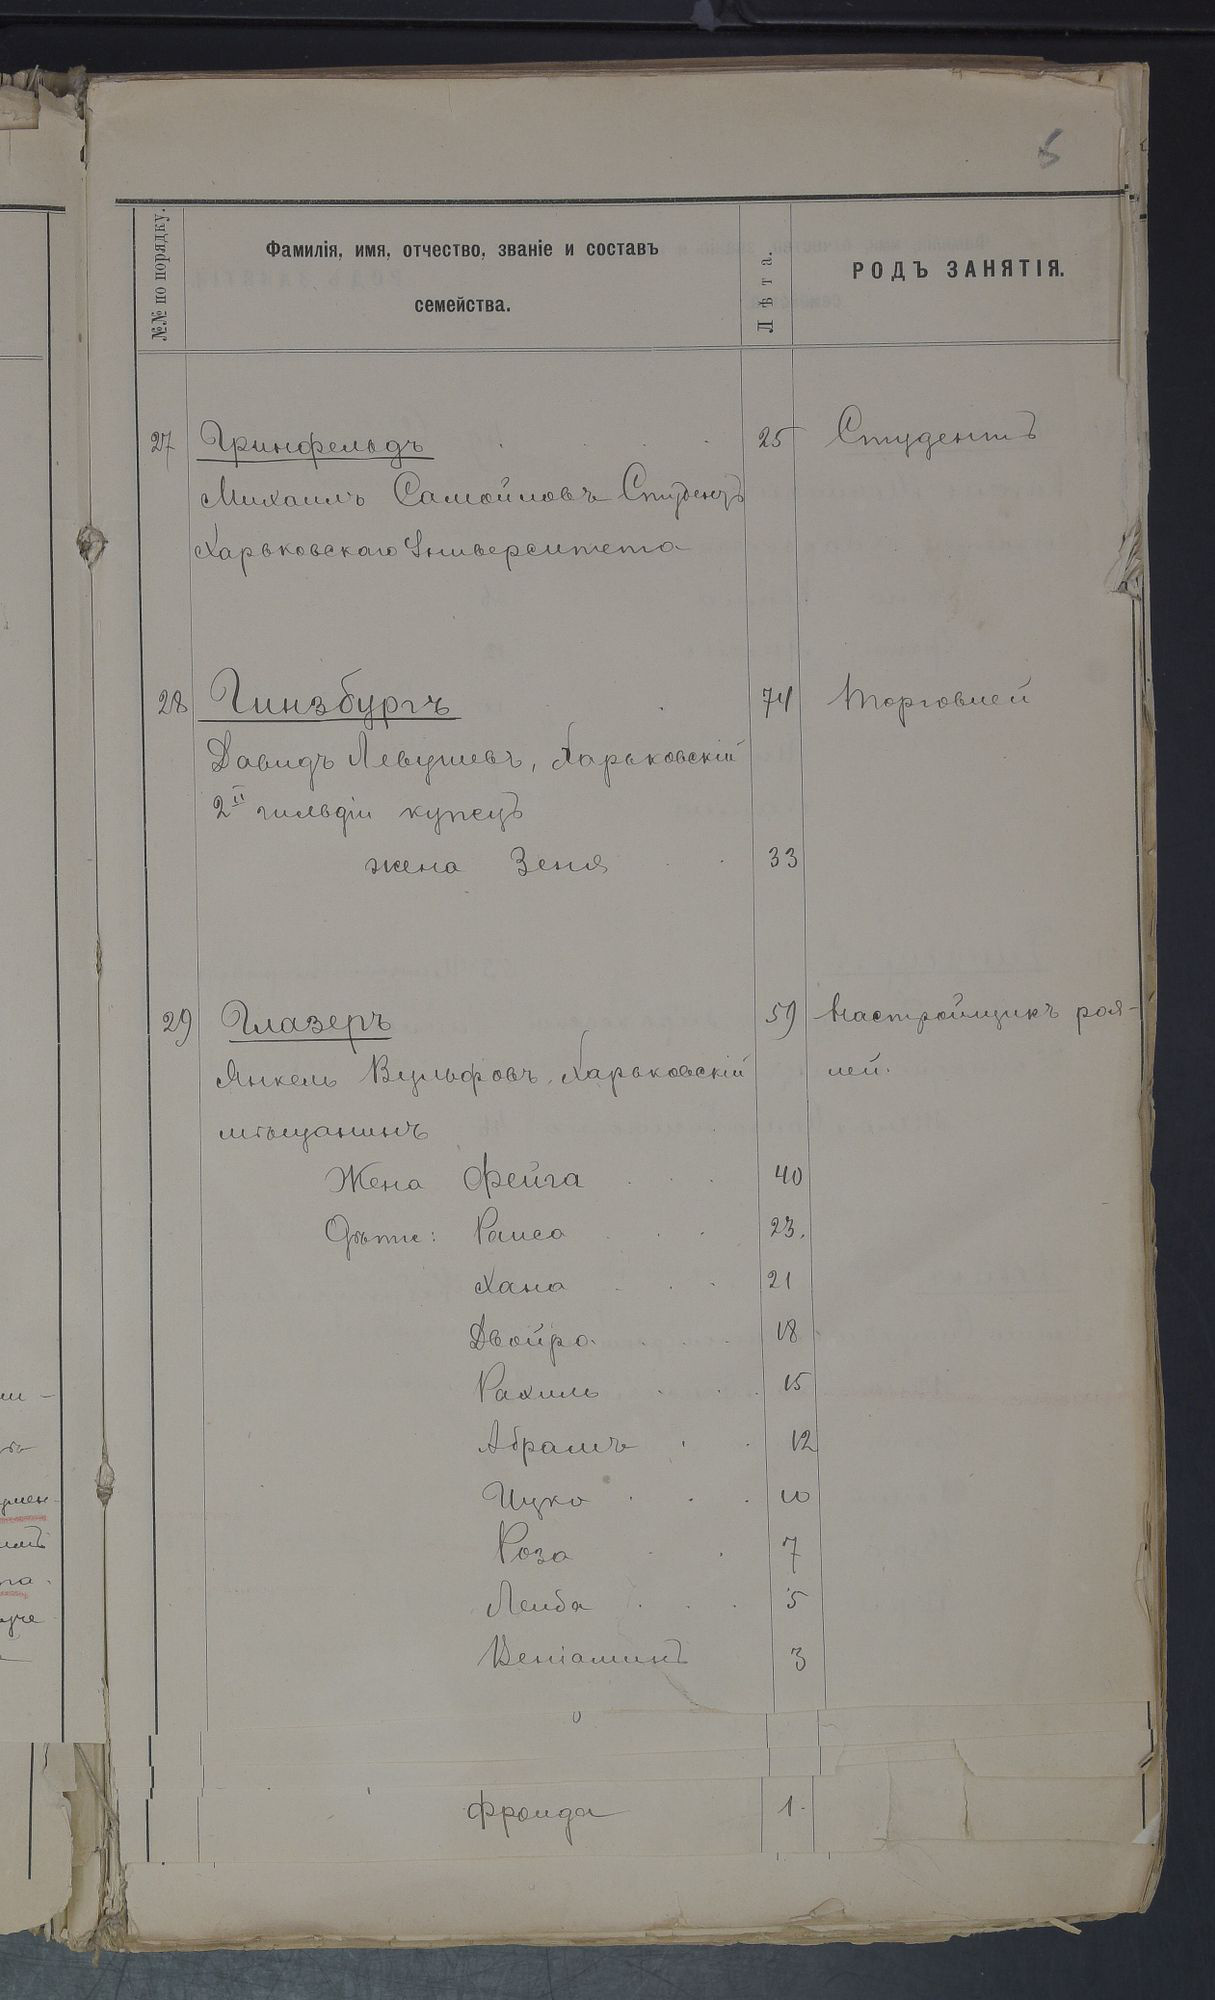 5
№№ по порядку. Фамилія, имя, отчество, званіе и составъ Лѣта. РОДЪ ЗАНЯТІЯ.
семейства.
27 Гринфельдъ 25 Студентъ
Михаилъ Самойловъ Студентъ
Харьковскаго Университета
28 Гинзбургъ 74 Торговлей
Давидъ Левушевъ, Харьковскій
2й гильдіи купецъ
жена Зеня 33
29 Глазеръ 59 Настройщикъ роя-
Янкель Вульфовъ, Харьковскій лей.
мѣщанинъ
Жена Фейга 40
Дѣти: Раиса 23.
Хана 21
Двойра 18
Рахиль 15
Абрамъ 12
Ицко 10
Роза 7
Лейба 5
Веніаминъ 3
Фроида 1.